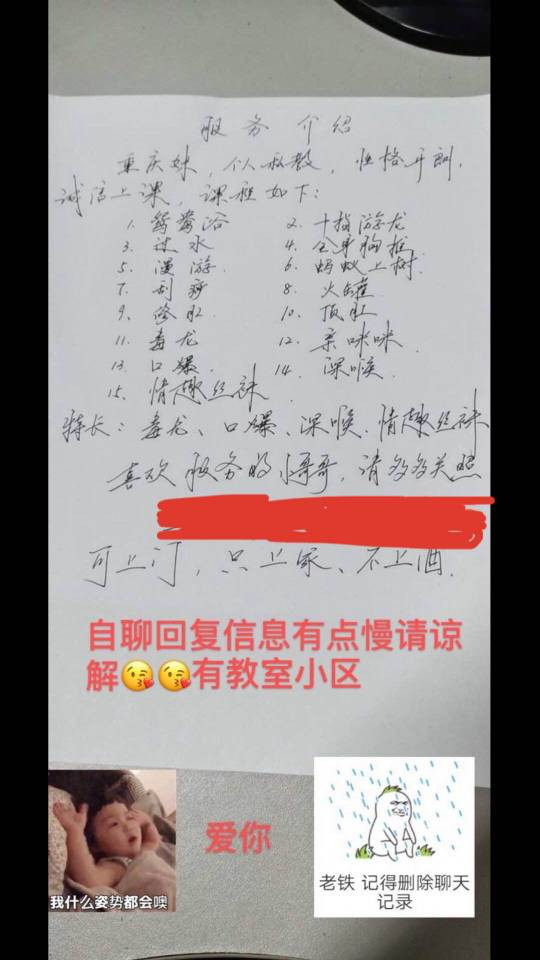 服务介绍
重庆妹，个人私教，性格开朗，
诚信上课，课程如下：
1. 鸳鸯浴 2. 十指游龙
3. 过水 4. 全身胸推
5. 漫游 6. 蚂蚁上树
7. 刮痧 8. 火罐
9. 臀肛 10. 顶肛
11. 毒龙 12. 亲咪咪
13. 口爆 14. 深喉
15. 情趣丝袜
特长：毒龙、口爆、深喉、情趣丝袜
喜欢服务的小哥哥，请多多关照
可上门，只上家、不上酒.
自聊回复信息有点慢请谅
解😘😘有教室小区
爱你
我什么姿势都会噢
老铁 记得删除聊天
记录